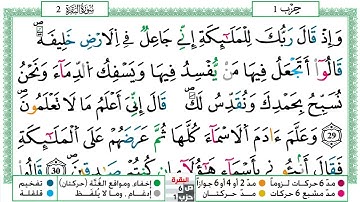 2 سُورَةُ البَقَرَةِ
حِزْب 1
وَإِذْ قَالَ رَبُّكَ لِلْمَلَٰٓئِكَةِ إِنِّے جَاعِلٞ فِے اِ۬لَارْضِ خَلِيفَةٗۖ
قَالُوٓاْ أَتَجْعَلُ فِيهَا مَنْ يُّفْسِدُ فِيهَا وَيَسْفِكُ اُ۬لدِّمَآءَ وَنَحْنُ
نُسَبِّحُ بِحَمْدِكَ وَنُقَدِّسُ لَكَۖ قَالَ إِنِّيَ أَعْلَمُ مَا لَا تَعْلَمُونَۖ
29 وَعَلَّمَ ءَادَمَ اَ۬لَاسْمَآءَ كُلَّهَا ثُمَّ عَرَضَهُمْ عَلَى اَ۬لْمَلَٰٓئِكَةِ
فَقَالَ أَنۢبِـُٔونِے بِأَسْمَآءِ هَٰٓؤُلَآءِ ان كُنتُمْ صَٰدِقِينَۖ 30 قَالُواْ
مدّ 6 حركات لزوماً
مدّ 2 أو 4 أو 6 جوازاً
إخفاء، ومواقع الغُنَّة (حركتان)
تفخيم
مدّ مشبع 6 حركات
مدّ حركتان
إدغام، وما لا يُلفظ
قلقلة
البقرة
ص 6
حزب 1